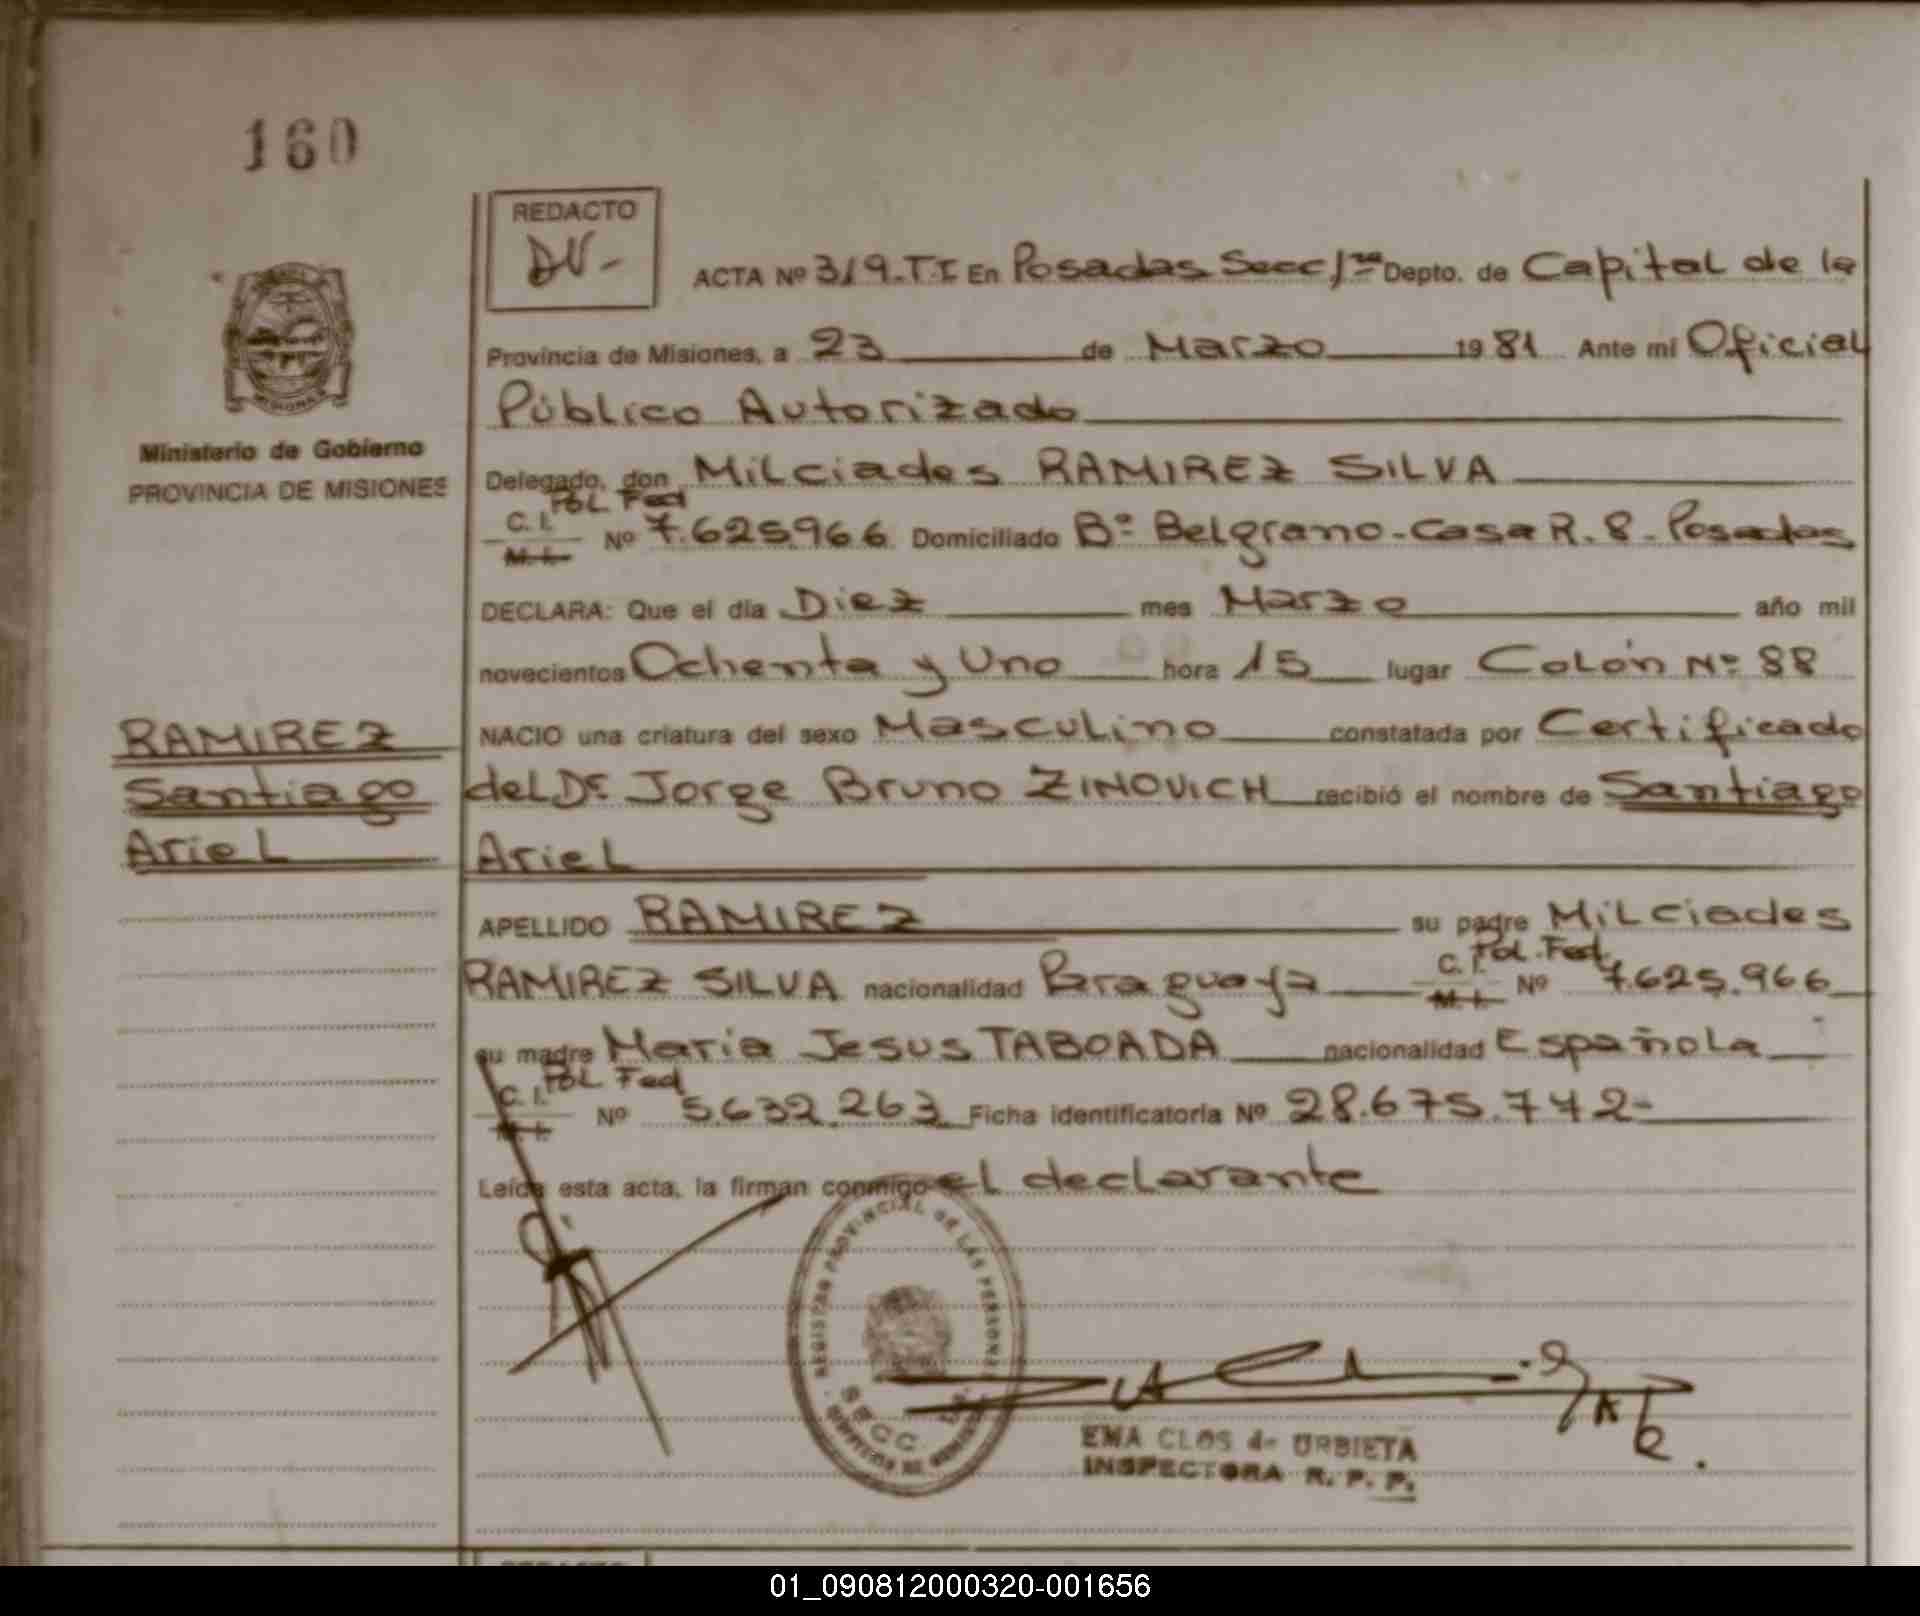 160
REDACTO
DV-
ACTA Nº 319.T.I En Posadas Secc 1ra Depto. de Capital de la
Provincia de Misiones, a 23 de Marzo 1981 Ante mi Oficial
Público Autorizado
Ministerio de Gobierno
PROVINCIA DE MISIONES
Delegado, don Milciades RAMIREZ SILVA
Pol Fed
C. I.
M. I. Nº 7.625.966 Domiciliado Bº Belgrano-Casa R. 8-Posadas
DECLARA: Que el día Diez mes Marzo año mil
novecientos Ochenta y Uno hora 15 lugar Colón Nº 88
RAMIREZ
Santiago
Ariel
NACIO una criatura del sexo Masculino constatada por Certificado
del Dr Jorge Bruno ZINOVICH recibió el nombre de Santiago
Ariel
APELLIDO RAMIREZ su padre Milciades
RAMIREZ SILVA nacionalidad Paraguaya C. I. Pol. Fed. M. I. Nº 7.625.966
su madre Maria Jesus TABOADA nacionalidad Española
Pol Fed
C. I.
M. I. Nº 5.632.263 Ficha identificatoria Nº 28.675.742-
Leída esta acta, la firman conmigo el declarante
REGISTRO PROVINCIAL de LAS PERSONAS
SECC
EMA CLOS de URBIETA
INSPECTORA R. P. P.
REDACTO
01_090812000320-001656